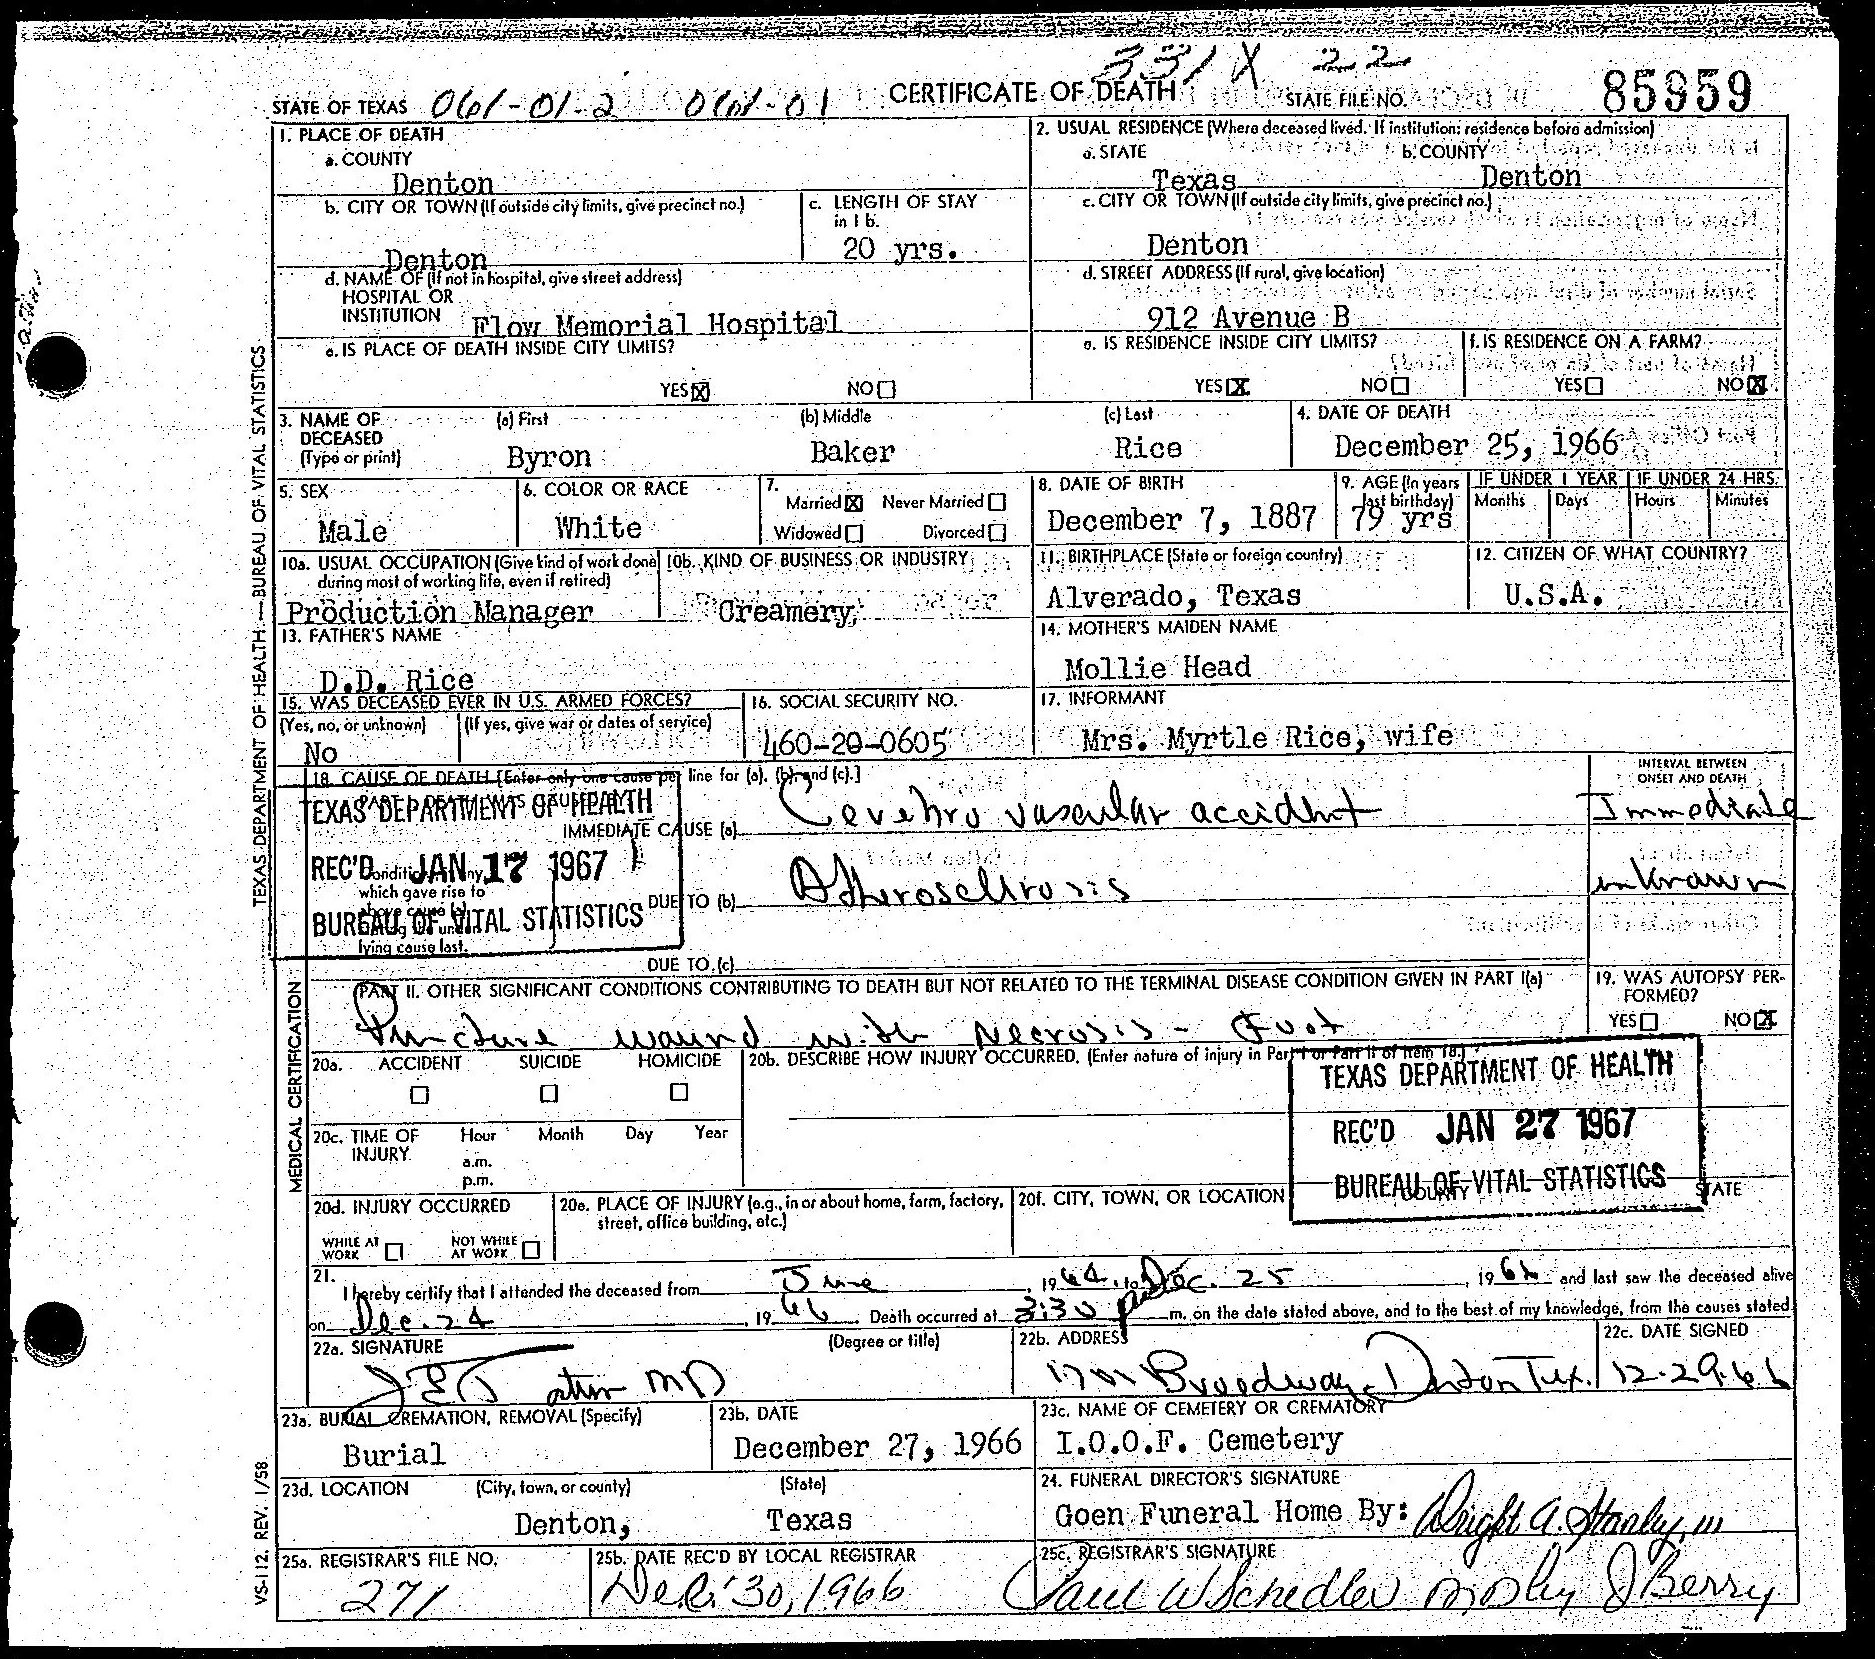 331X 22
STATE OF TEXAS 061-01-2 061-01 CERTIFICATE OF DEATH STATE FILE NO. 85959
1. PLACE OF DEATH
a. COUNTY
Denton
2. USUAL RESIDENCE (Where deceased lived. If institution: residence before admission)
a. STATE b. COUNTY
Texas Denton
b. CITY OR TOWN (If outside city limits, give precinct no.)
Denton
c. LENGTH OF STAY
in 1 b.
20 yrs.
c. CITY OR TOWN (If outside city limits, give precinct no.)
Denton
d. NAME OF (If not in hospital, give street address)
HOSPITAL OR
INSTITUTION Flow Memorial Hospital
d. STREET ADDRESS (If rural, give location)
912 Avenue B
e. IS PLACE OF DEATH INSIDE CITY LIMITS?
YES ☒ NO ☐
e. IS RESIDENCE INSIDE CITY LIMITS?
YES ☒ NO ☐
f. IS RESIDENCE ON A FARM?
YES ☐ NO ☒
3. NAME OF DECEASED (Type or print)
(a) First (b) Middle (c) Last
Byron Baker Rice
4. DATE OF DEATH
December 25, 1966
5. SEX
Male
6. COLOR OR RACE
White
7.
Married ☒ Never Married ☐
Widowed ☐ Divorced ☐
8. DATE OF BIRTH
December 7, 1887
9. AGE (In years last birthday)
79 yrs
IF UNDER 1 YEAR IF UNDER 24 HRS.
Months Days Hours Minutes
10a. USUAL OCCUPATION (Give kind of work done
during most of working life, even if retired)
Production Manager
10b. KIND OF BUSINESS OR INDUSTRY
Creamery
11. BIRTHPLACE (State or foreign country)
Alverado, Texas
12. CITIZEN OF WHAT COUNTRY?
U.S.A.
13. FATHER'S NAME
D.D. Rice
14. MOTHER'S MAIDEN NAME
Mollie Head
15. WAS DECEASED EVER IN U.S. ARMED FORCES?
(Yes, no, or unknown) (If yes, give war or dates of service)
No
16. SOCIAL SECURITY NO.
460-20-0605
17. INFORMANT
Mrs. Myrtle Rice, wife
18. CAUSE OF DEATH [Enter only one cause per line for (a), (b), and (c).]
INTERVAL BETWEEN
ONSET AND DEATH
IMMEDIATE CAUSE (a) Cerebro vascular accident Immediate
which gave rise to
lying cause last.
DUE TO (b) Atherosclerosis unknown
DUE TO (c)
TEXAS DEPARTMENT OF HEALTH
REC'D JAN 17 1967
BUREAU OF VITAL STATISTICS
PART II. OTHER SIGNIFICANT CONDITIONS CONTRIBUTING TO DEATH BUT NOT RELATED TO THE TERMINAL DISEASE CONDITION GIVEN IN PART I(a)
Puncture wound with Necrosis - Foot
19. WAS AUTOPSY PERFORMED?
YES ☐ NO ☒
20a. ACCIDENT SUICIDE HOMICIDE
☐ ☐ ☐
20b. DESCRIBE HOW INJURY OCCURRED. (Enter nature of injury in Part I or Part II of item 18.)
TEXAS DEPARTMENT OF HEALTH
REC'D JAN 27 1967
BUREAU OF VITAL STATISTICS
20c. TIME OF INJURY Hour Month Day Year
a.m.
p.m.
20d. INJURY OCCURRED
WHILE AT WORK ☐ NOT WHILE AT WORK ☐
20e. PLACE OF INJURY (e.g., in or about home, farm, factory,
street, office building, etc.)
20f. CITY, TOWN, OR LOCATION COUNTY STATE
21.
I hereby certify that I attended the deceased from June, 1964, to Dec. 25, 1966 and last saw the deceased alive
on Dec. 24, 1966. Death occurred at 3:30 p m. on the date stated above, and to the best of my knowledge, from the causes stated.
22a. SIGNATURE (Degree or title)
MD
22b. ADDRESS
Broadway, Denton Tex.
22c. DATE SIGNED
12-29-66
23a. BURIAL, CREMATION, REMOVAL (Specify)
Burial
23b. DATE
December 27, 1966
23c. NAME OF CEMETERY OR CREMATORY
I.O.O.F. Cemetery
23d. LOCATION (City, town, or county) (State)
Denton, Texas
24. FUNERAL DIRECTOR'S SIGNATURE
Goen Funeral Home By: Dwight A. Stanley, III
25a. REGISTRAR'S FILE NO.
271
25b. DATE REC'D BY LOCAL REGISTRAR
Dec. 30, 1966
25c. REGISTRAR'S SIGNATURE
Paul W Schedler J Berry
TEXAS DEPARTMENT OF HEALTH — BUREAU OF VITAL STATISTICS
MEDICAL CERTIFICATION
VS-112, REV. 1/58